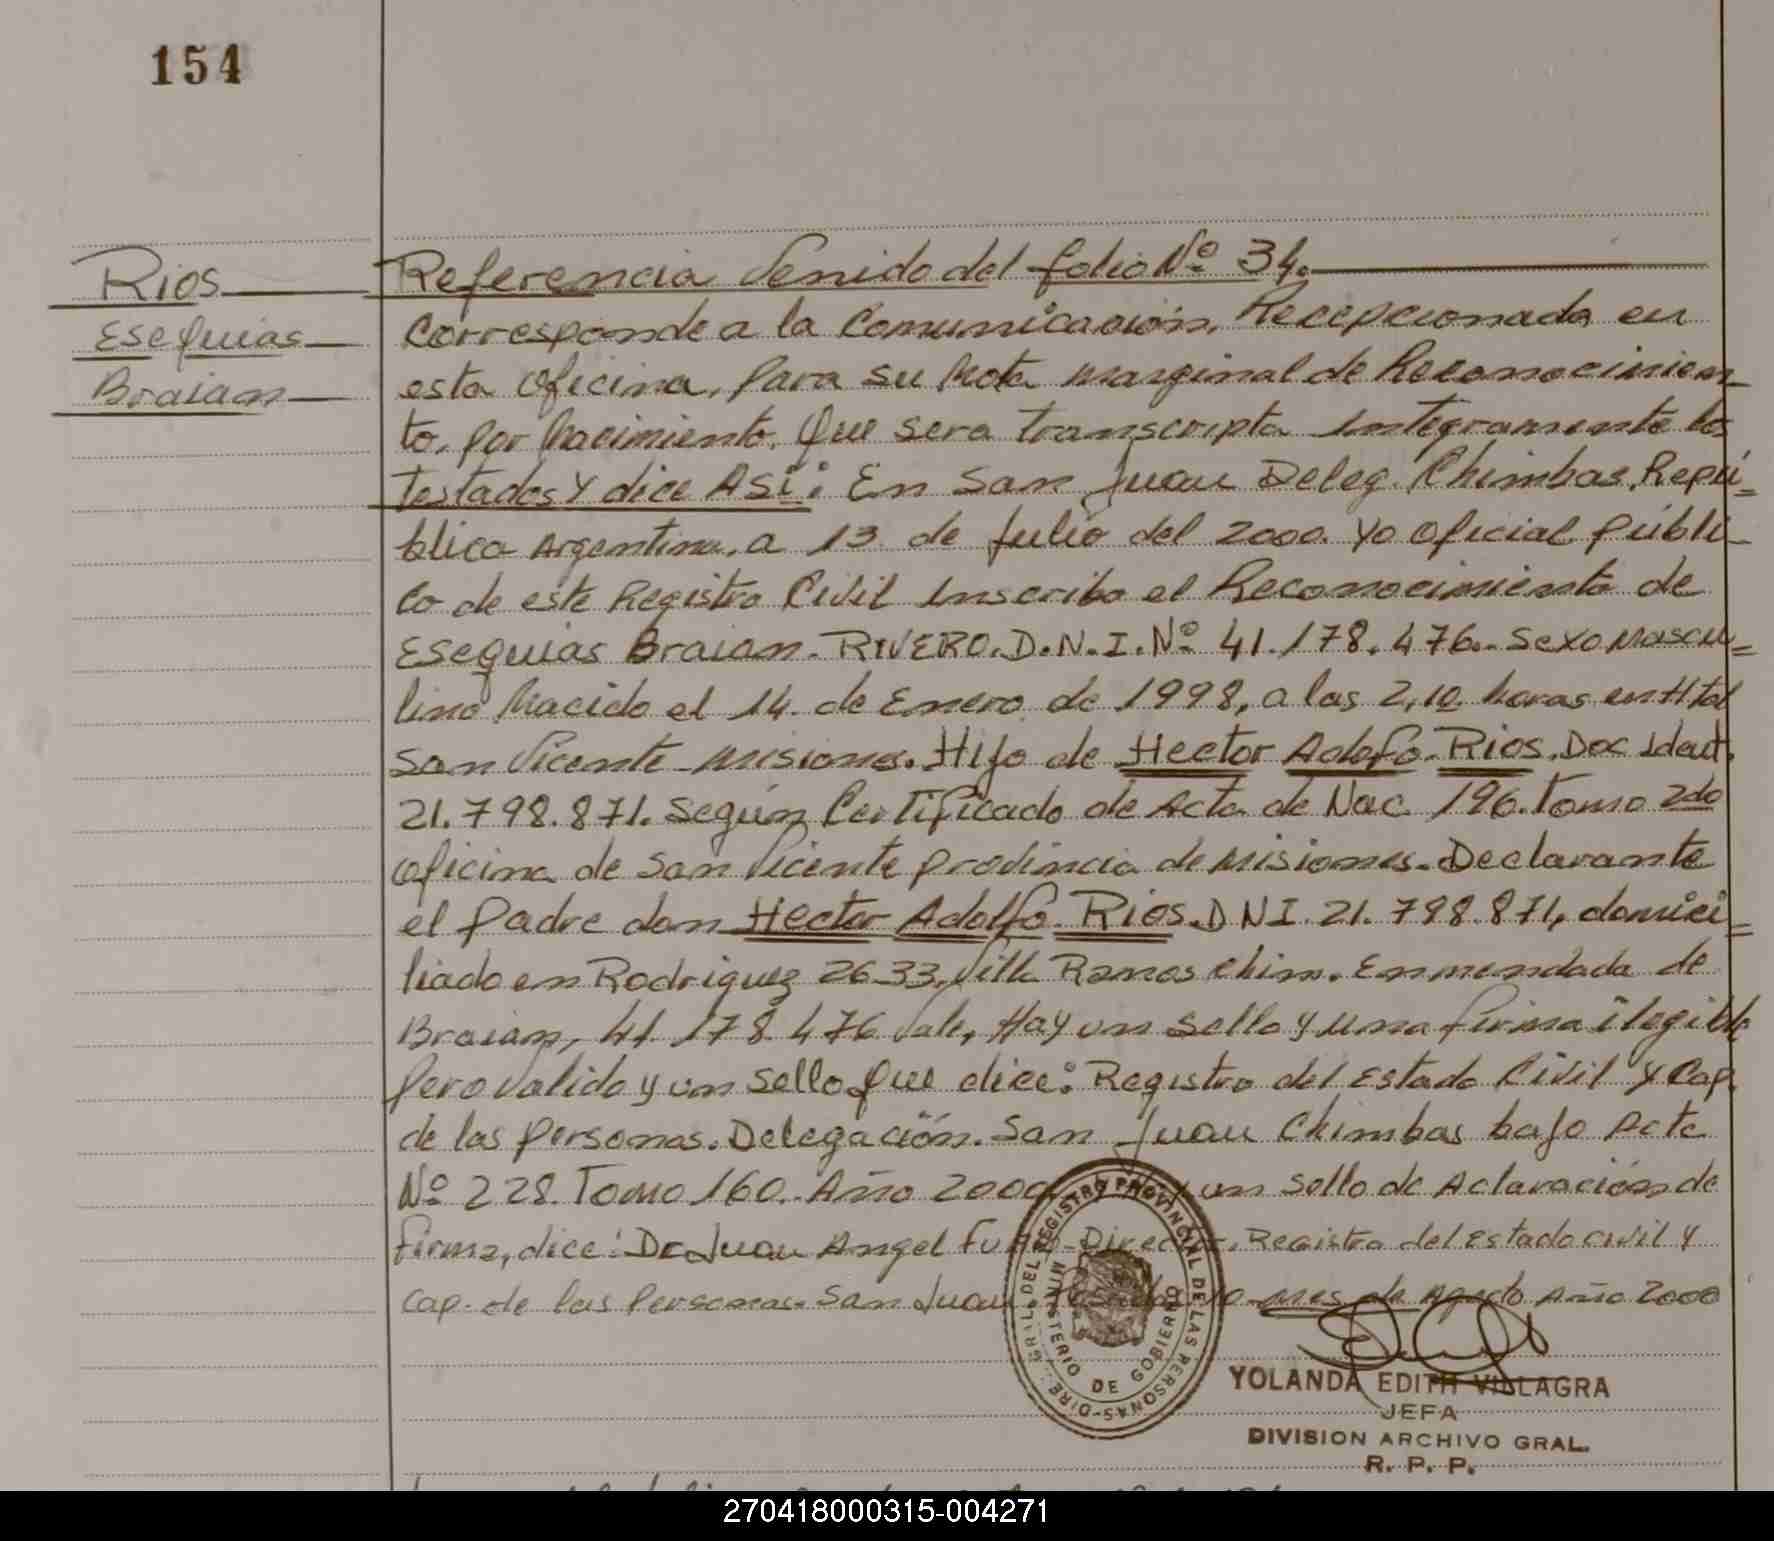 154
Rios
Esequias
Braian
Referencia Venido del folio Nº 34.
Corresponde a la Comunicación, Recepcionada en
esta oficina, Para su Nota marginal de Reconocimien-
to, por Nacimiento. Que sera transcripta integramente los
testados y dice ASi: En San Juan Deleg. Chimbas, Repú=
blica Argentina, a 13 de Julio del 2000. Yo oficial públi-
co de este Registro Civil inscribo el Reconocimiento de
Esequias Braian. RIVERO. D.N.I. Nº 41.178.476.- Sexo Mascu=
lino Nacido el 14 de Enero de 1998, a las 2,10 horas en Htal
San Vicente - Misiones. Hijo de Hector Adolfo Rios. Doc Ident.
21.798.871. Según Certificado de Acta de Nac. 196. Tomo 2do
oficina de San Vicente provincia de Misiones. Declarante
el Padre don Hector Adolfo Rios. DNI. 21.798.871, domici=
liado en Rodriguez 2633. Villa Ramos Chim. Enmendada de
Braian, 41.178.476 Vale, Hay un sello y una firma ilegible
pero valido y un sello que dice: Registro del Estado Civil y Cap.
de las personas. Delegación. San Juan Chimbas bajo Acta
Nº 228. Tomo 160. Año 2000 y un sello de Aclaración de
firma, dice: Dr Juan Angel Director. Registro del Estado civil y
Cap. de las Personas. San Juan mes de Agosto Año 2000
DIRE. GRAL. DEL REGISTRO PROVINCIAL DE LAS PERSONAS
MINISTERIO DE GOBIERNO
YOLANDA EDITH VILLAGRA
JEFA
DIVISION ARCHIVO GRAL.
R. P. P.
270418000315-004271